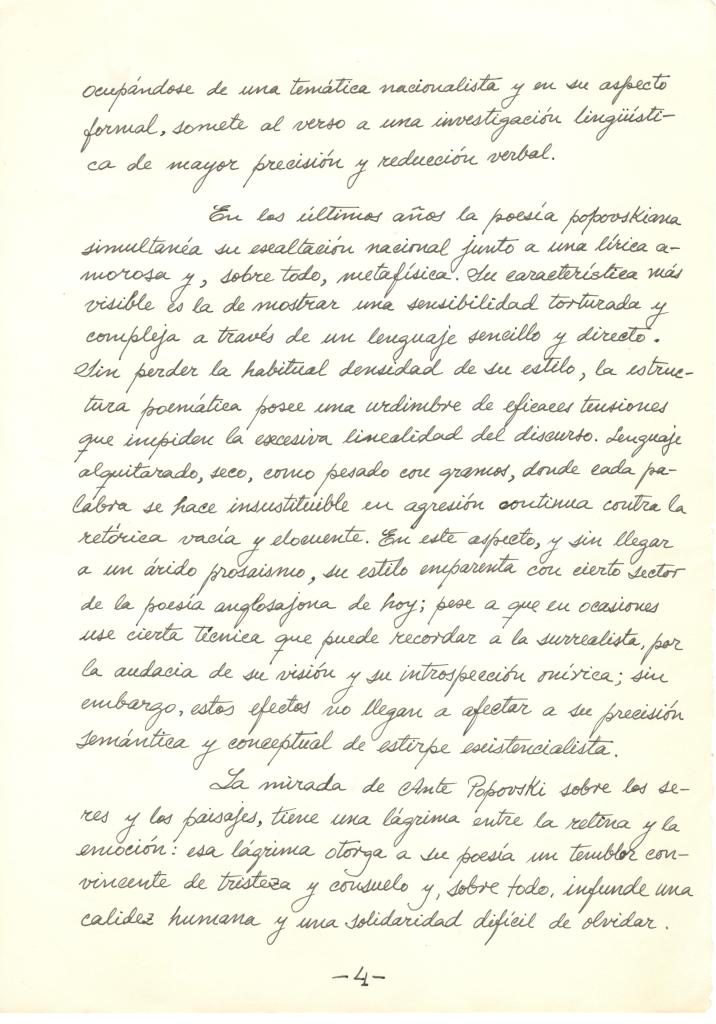 ocupándose de una temática nacionalista y en su aspecto
formal, somete al verso a una investigación lingüísti-
ca de mayor precisión y reducción verbal.
En los últimos años la poesía popovskiana
simultanéa su exaltación nacional junto a una lírica a-
morosa y, sobre todo, metafísica. Su característica más
visible es la de mostrar una sensibilidad torturada y
compleja a través de un lenguaje sencillo y directo.
Sin perder la habitual densidad de su estilo, la estruc-
tura poemática posee una urdimbre de eficaces tensiones
que impiden la excesiva linealidad del discurso. Lenguaje
alquitarado, seco, como pesado con gramos, donde cada pa-
labra se hace insustituíble en agresión continua contra la
retórica vacía y elocuente. En este aspecto, y sin llegar
a un árido prosaismo, su estilo emparenta con cierto sector
de la poesía anglosajona de hoy; pese a que en ocasiones
use cierta técnica que puede recordar a la surrealista, por
la audacia de su visión y su introspección onírica; sin
embargo, estos efectos no llegan a afectar a su precisión
semántica y conceptual de estirpe existencialista.
La mirada de Ante Popovski sobre los se-
res y los paisajes, tiene una lágrima entre la retina y la
emoción: esa lágrima otorga a su poesía un temblor con-
vincente de tristeza y consuelo y, sobre todo, infunde una
calidez humana y una solidaridad difícil de olvidar.
-4-